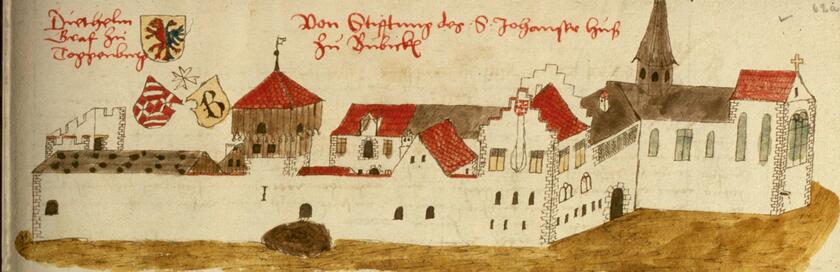 Diethelm
Graf zu
Toggenburg
Von Stiftung des S. Johanser huß
zu Bubickē
62a
B
I